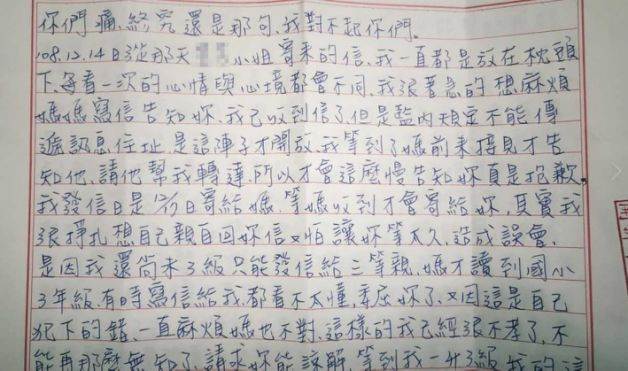 你們痛,終究還是那句,我對不起你們。
108.12.14日從那天 小姐寄來的信,我一直都是放在枕頭
下,每看一次的心情與心境都會不同,我很著急的想麻煩
媽媽寫信告知妳,我已收到信了,但是監內規定不能傳
遞訊息住址,是這陣子才開放,我等到了媽前來接見才告
知他,請他幫我轉達,所以才會這麼慢告知妳真是抱歉,
我發信日是今日寄給媽,等媽收到才會寄給妳,其實我
很掙扎想自己親自回妳信,又怕讓妳等太久,造成誤會,
是因我還尚未3級只能發信給三等親,媽才讀到國小
3年級,有時寫信給我都看不太懂,委屈妳了,又因這是自己
犯下的錯,一直麻煩媽也不對,這樣的我已經很不孝了,不
能再那麼無知了,請求妳能諒解,等到我一升3級,我的